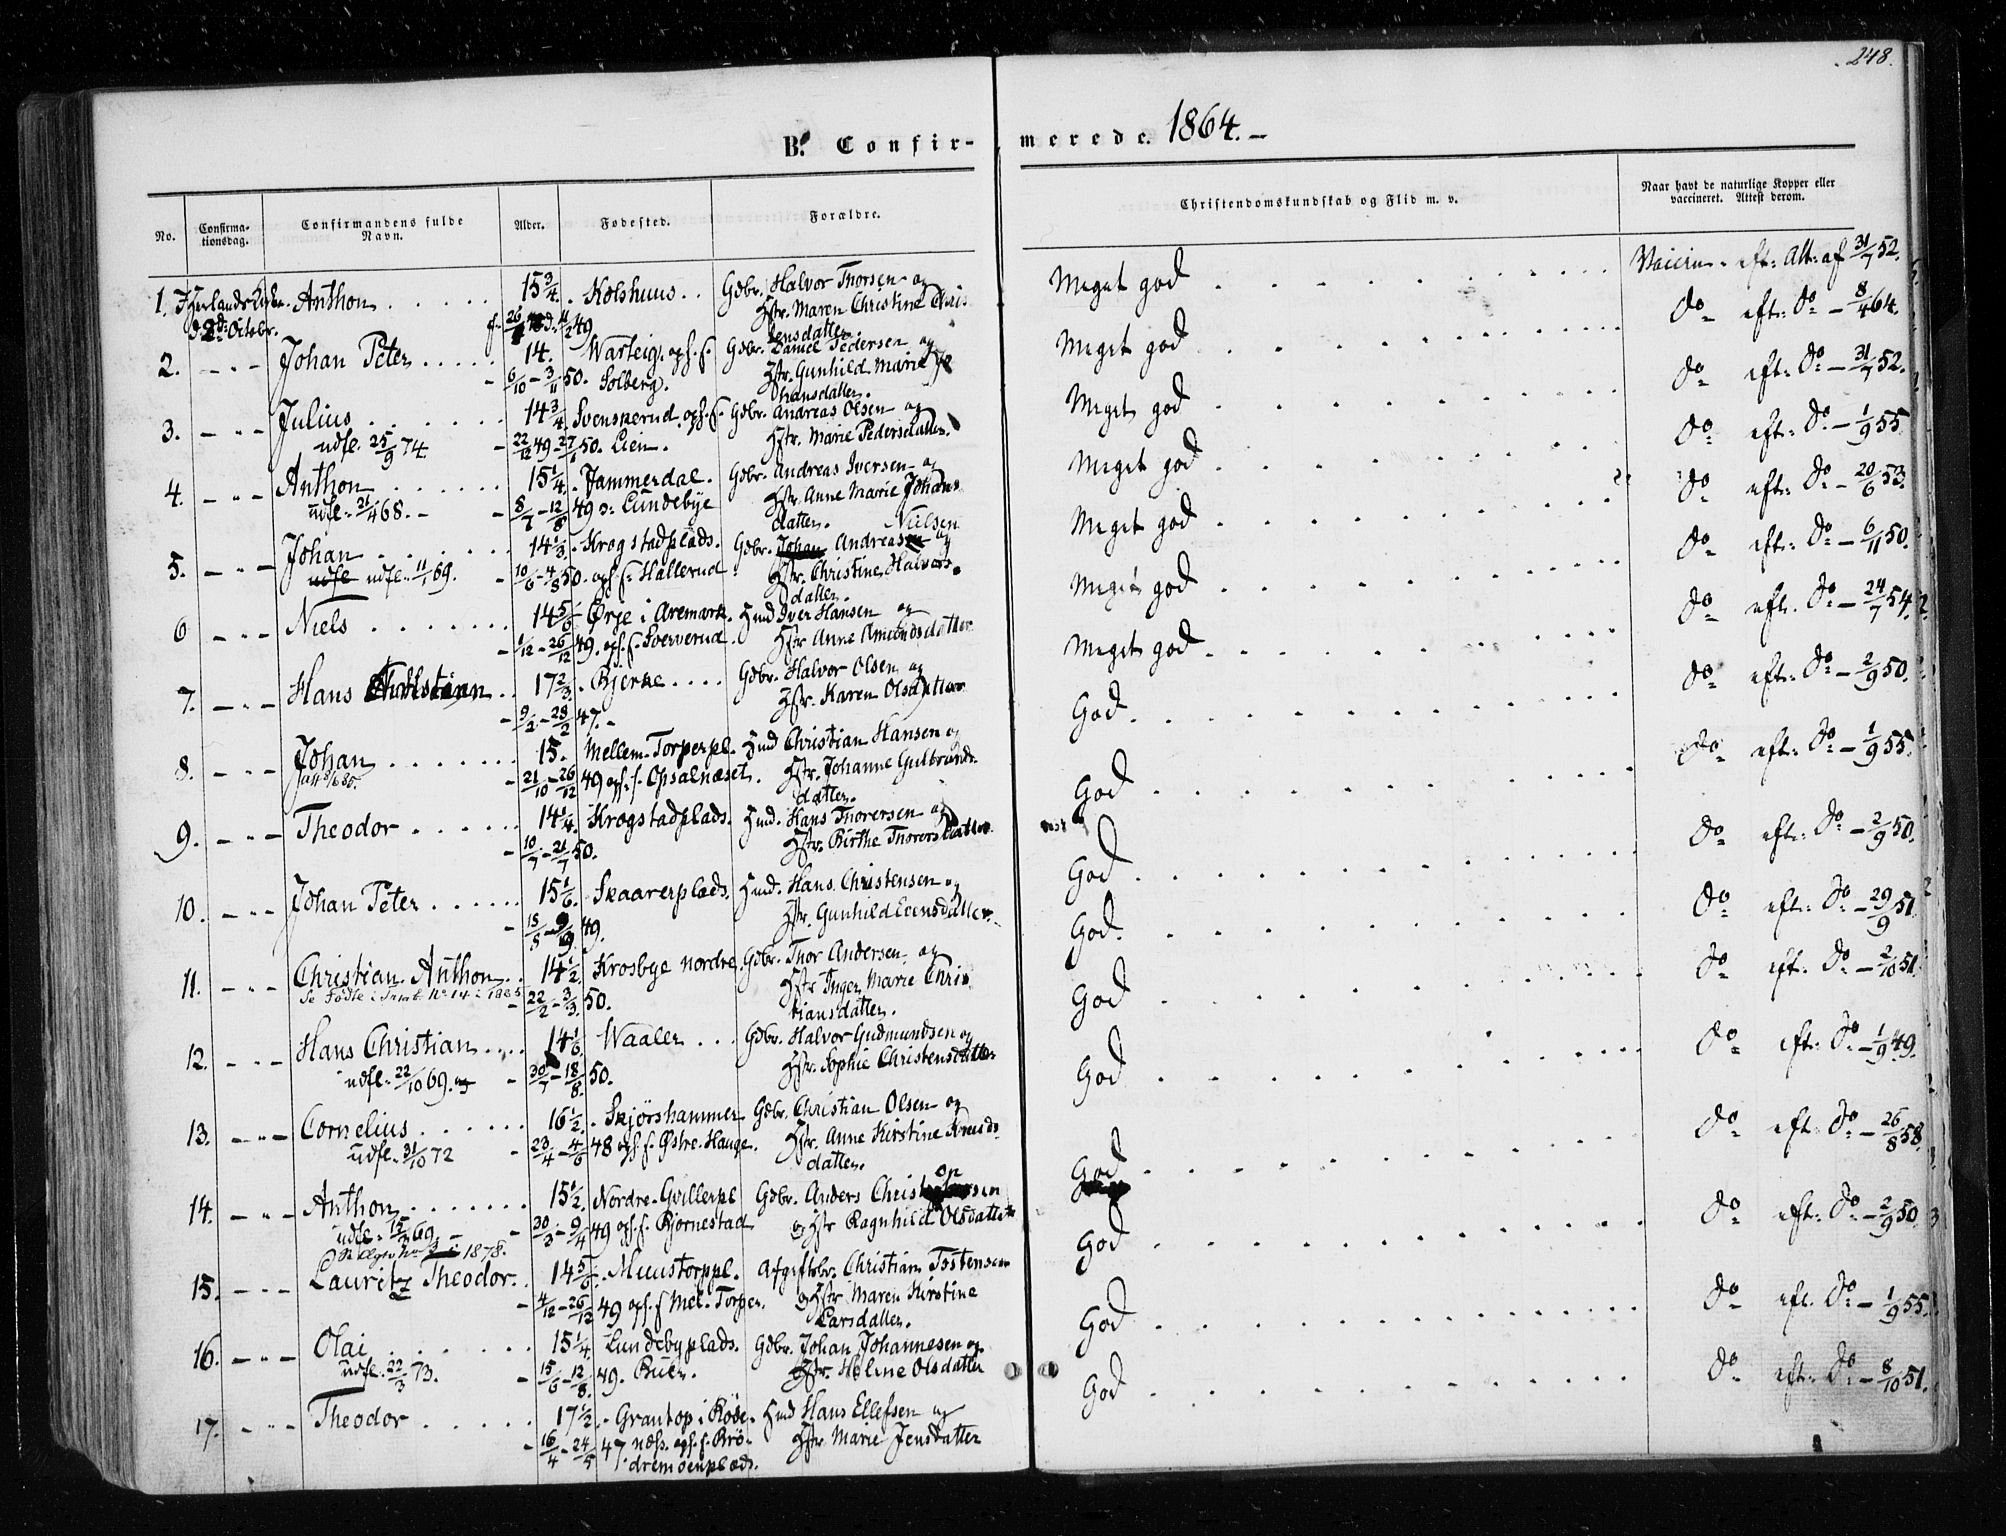 248.
B. Confir-merede. 1864.-
No. Confirma-tionsdag. Confirmandens fulde Navn. Alder. Fødested. Forældre. Christendomskundskab og Flid m. v. Naar havt de naturlige Kopper eller vaccineret. Attest derom.
1. Anthon 15 3/4. Kolshuus. Gdbr. Halvor Thorsen og Meget god Vaccin. eft: Att: af 31/7 52.
d: 2den Octobr. 49 Hstr. Maren Christine Chris
tensdatter.
2. - " - Johan Peter 14. Warteig. opf. f. Gdbr. Daniel Pedersen og Meget god do eft: do - 8/4 64.
6/10 - 3/11 50. Solberg. Hstr. Gunhild Marie Jo
hansdatter.
3. - " - Julius 14 3/4 Svenskerud. opf. f. Gdbr. Andreas Olsen og Meget god do eft: do - 31/7 52.
udfl. 25/9 74. 22/12 49 - 27/1 50. Lien. Hstr. Marie Pedersdatter.
4. - " - Anthon 15 1/4. Jammerdal. Gdbr. Andreas Iversen og Meget god do eft: do - 1/9 55
udfl. 21/4 68. - 8/7 - 12/8 49 o: Lundebye Hstr. Anne Marie Johans
datter.
5. - " - Johan 14 1/3. Krogstadplads. Gdbr. Johan Andreas Nielsen og Meget god do eft: do - 20/6 53.
udfl udfl. 11/1 69. 10/6 - 4/8 50. opf. f. Hallerud Hstr. Christine Halvors-
datter.
6 - " - Niels 14 5/6 Ørje i Aremark. Hmd Iver Hansen og Meget god do eft: do - 6/11 50.
1/12 - 26/12 49. opf. f. Sververud. Hstr Anne Amundsdatter
7. - " - Hans Christian 17 2/3. Bjerke. Gdbr. Halvor Olsen og Meget god do eft: do - 24/7 54.
9/2 - 28/2 47. - Hstr. Karen Olsdatter
8. - " - Johan 15. Mellem-Torperpl. Hmd Christian Hansen og God do eft: do - 2/9 50.
21/10 - 26/12 49 opf. f. Opsalnæset. Hstr. Johanne Gulbrands-
datter.
9. - " - Theodor 14 1/4. Krogstadplads. Hmd. Hans Thorersen og God do eft: do - 1/9 55.
10/7 - 21/7 50. Hstr. Birthe Thorersdatter
10. - " - Johan Peter 15 1/6. Skaarerplads. Hmd. Hans Christensen og God do eft: do - 2/9 50.
15/8 - 9/9 49. Hstr. Gunhild Evensdatter.
11. - " - Christian Anthon 14 1/2. Krosbye nordre. Gdbr. Thor Andersen og God. do eft: do - 29/9 51
22/2 - 3/3. 50. Hstr Inger Marie Chris
tiansdatter.
12. - " - Hans Christian 14 1/6. Waaler Gdbr. Halvor Gudmundsen og God do eft: do - 2/10 51.
udfl. 22/10 69. 30/7 - 18/8. 50. Hstr. Sophie Christensdatter
13. - " - Cornelius 16 1/2. Skjørshammer Gdbr. Christian Olsen og God do eft: do - 1/9 49.
udfl. 31/10 72 23/4 - 4/6 48 opf. f. Østre-Hauge. Hstr. Anne Kirstine Knuds-
datter.
14. - " - Anthon 15 1/2. Nordre-Gvillerpl Gdbr. Anders Christophersen God do eft: do - 26/8 58.
udfl. 69. 30/3 - 9/4 49 opf. f. Bjørnestad og Hstr Ragnhild Olsdatter
1878.
15. - " - Lauritz Theodor. 14 5/6. Muustorppl. Afgiftsbr. Christian Tostensen God do eft: do - 2/9 50.
4/12 - 26/12 49 opf. f Mel. Torper. og Hstr Maren Kirstine
Larsdatter.
16. - " - Olai 15 1/4 Lundebyplads. Gdbr. Johan Johannesen og God do eft. do - 1/9 55.
udfl. 22/3 73. 15/6 - 12/8. 49. Hstr. Heline Olsdatter
17. - " - Theodor 17 1/2. Grantop i Røde- Hmd Hans Ellefsen og God do eft: do - 8/10 51.
16/4 - 24/5 47 næs. opf. f. Brø- Hstr Marie Jensdatter
dremoenplads.